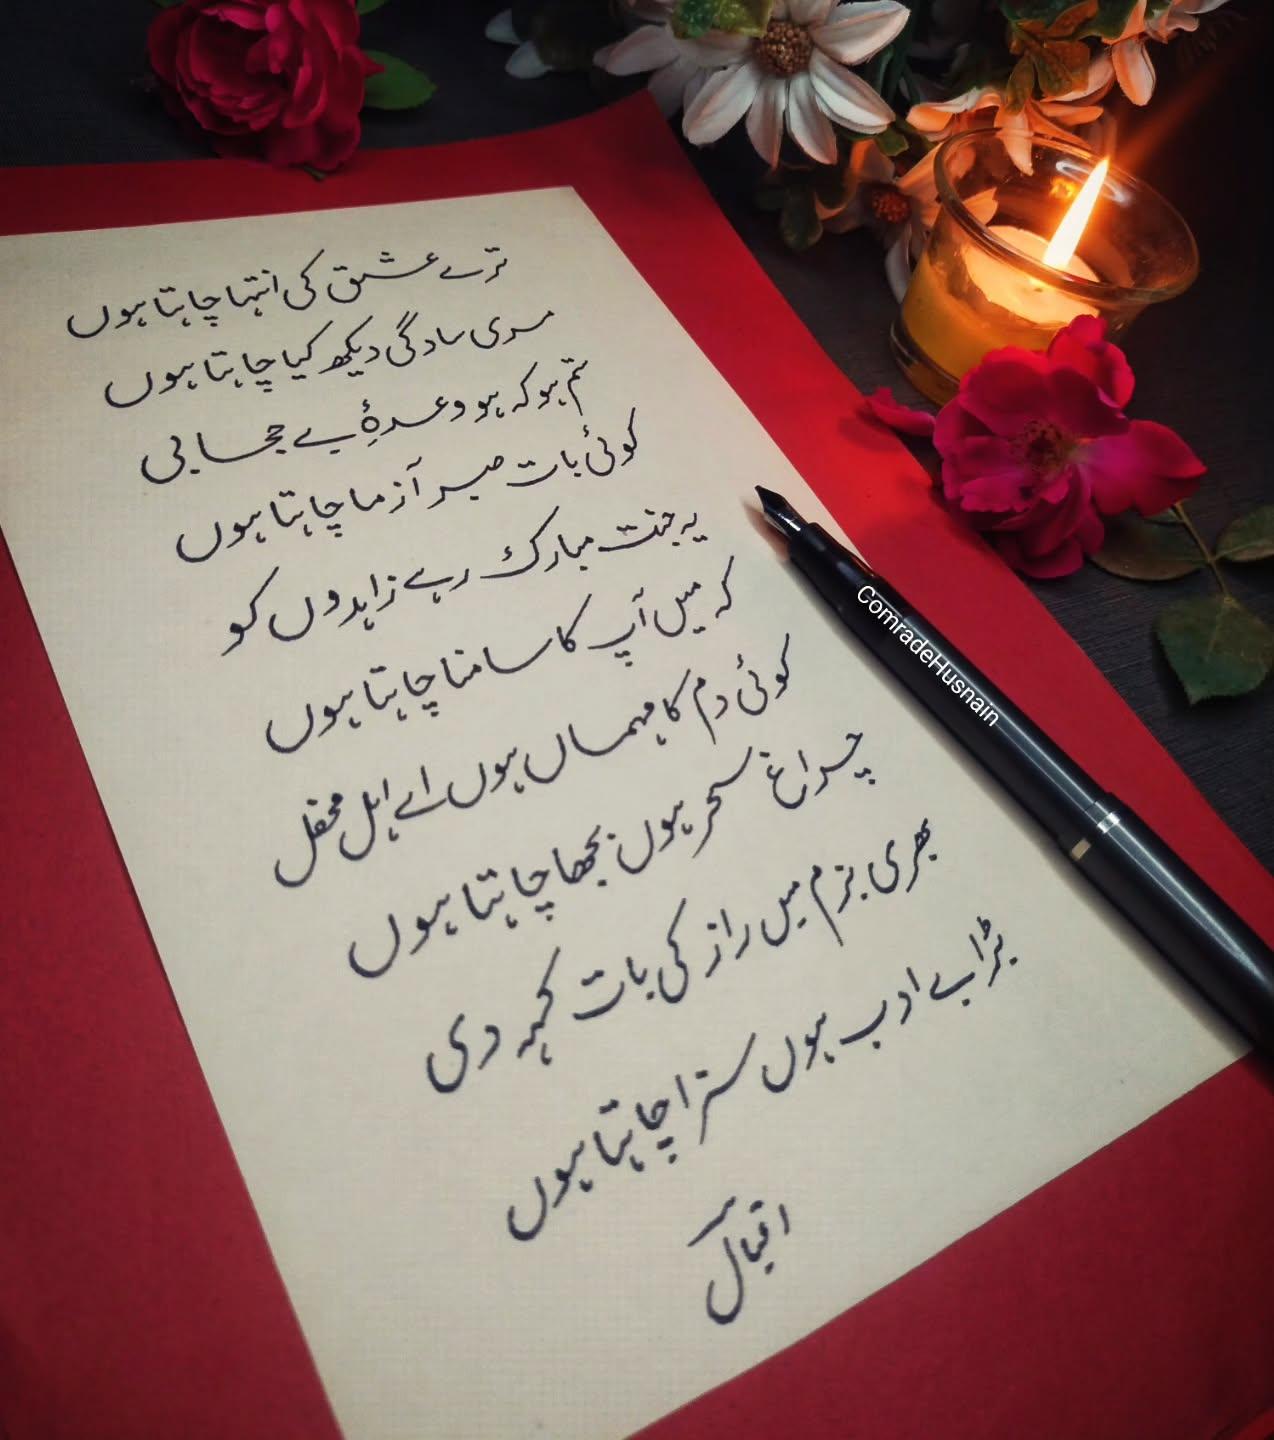 ترے عشق کی انتہا چاہتا ہوں
مری سادگی دیکھ کیا چاہتا ہوں
ستم ہو کہ ہو وعدۂ بے حجابی
کوئی بات صبر آزما چاہتا ہوں
یہ جنت مبارک رہے زاہدوں کو
کہ میں آپ کا سامنا چاہتا ہوں
کوئی دم کا مہماں ہوں اے اہل محفل
چراغ سحر ہوں بجھا چاہتا ہوں
بھری بزم میں راز کی بات کہہ دی
بڑا بے ادب ہوں سزا چاہتا ہوں
اقبالؔ
ComradeHusnain